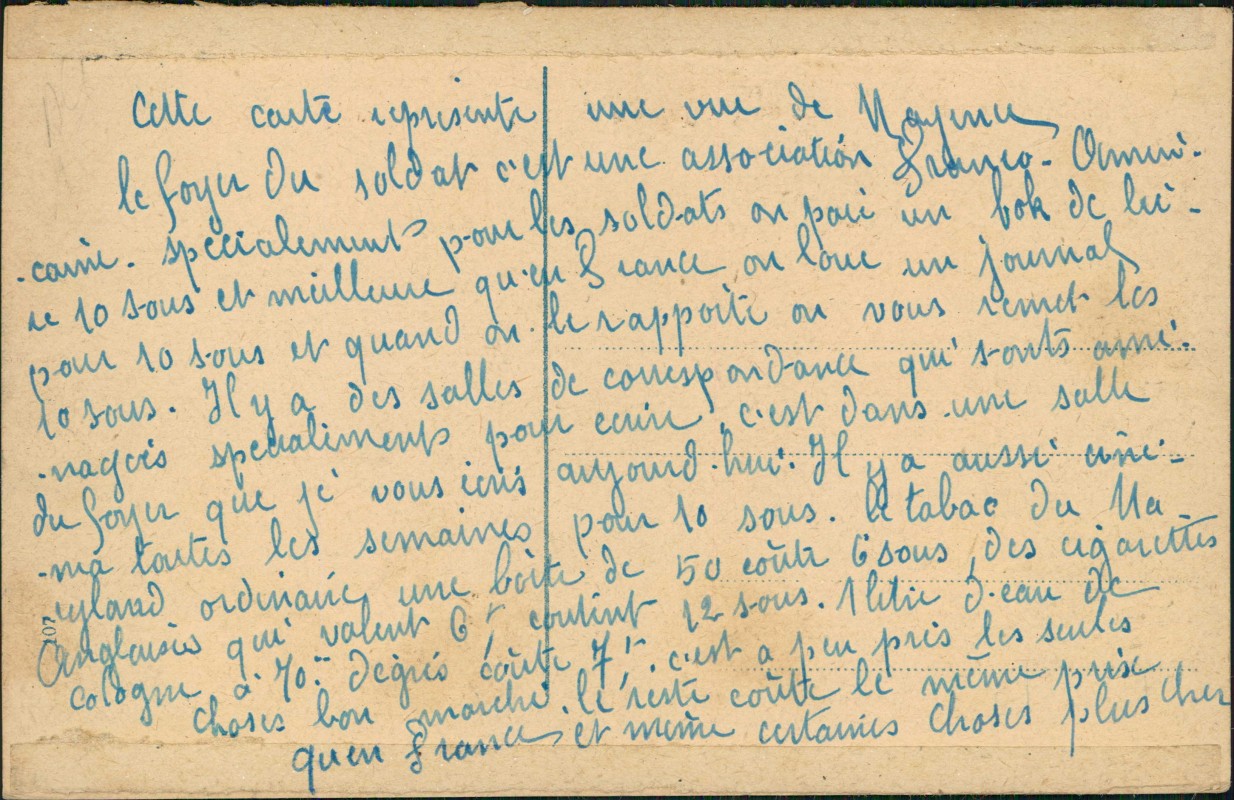 Cette carte represente une vue de Mayence
le foyer du soldat c'est une association Franco-Améri-
-caine. specialement pour les soldats on paie un bok de biè-
re 10 sous et meilleure qu'en France on loue un journal
pour 10 sous et quand on le rapporte on vous remet les
10 sous. Il y a des salles de correspondance qui sonts amé-
-nageés specialements pour ecrire, c'est dans une salle
du foyer que je vous ecris aujourd'hui. Il y a aussi ciné-
-ma toutes les semaines pour 10 sous. le tabac du Ma-
ryland ordinaire, une boite de 50 coûte 6 sous, des cigarettes
Anglaises qui valent 6f, coutent 12 sous. 1 litre d'eau de
Cologne a 70° degrés coûte 7f, c'est a peu près les seules
choses bon marché. le reste coûte le même prix
qu'en France et meme certaines choses plus cher
107